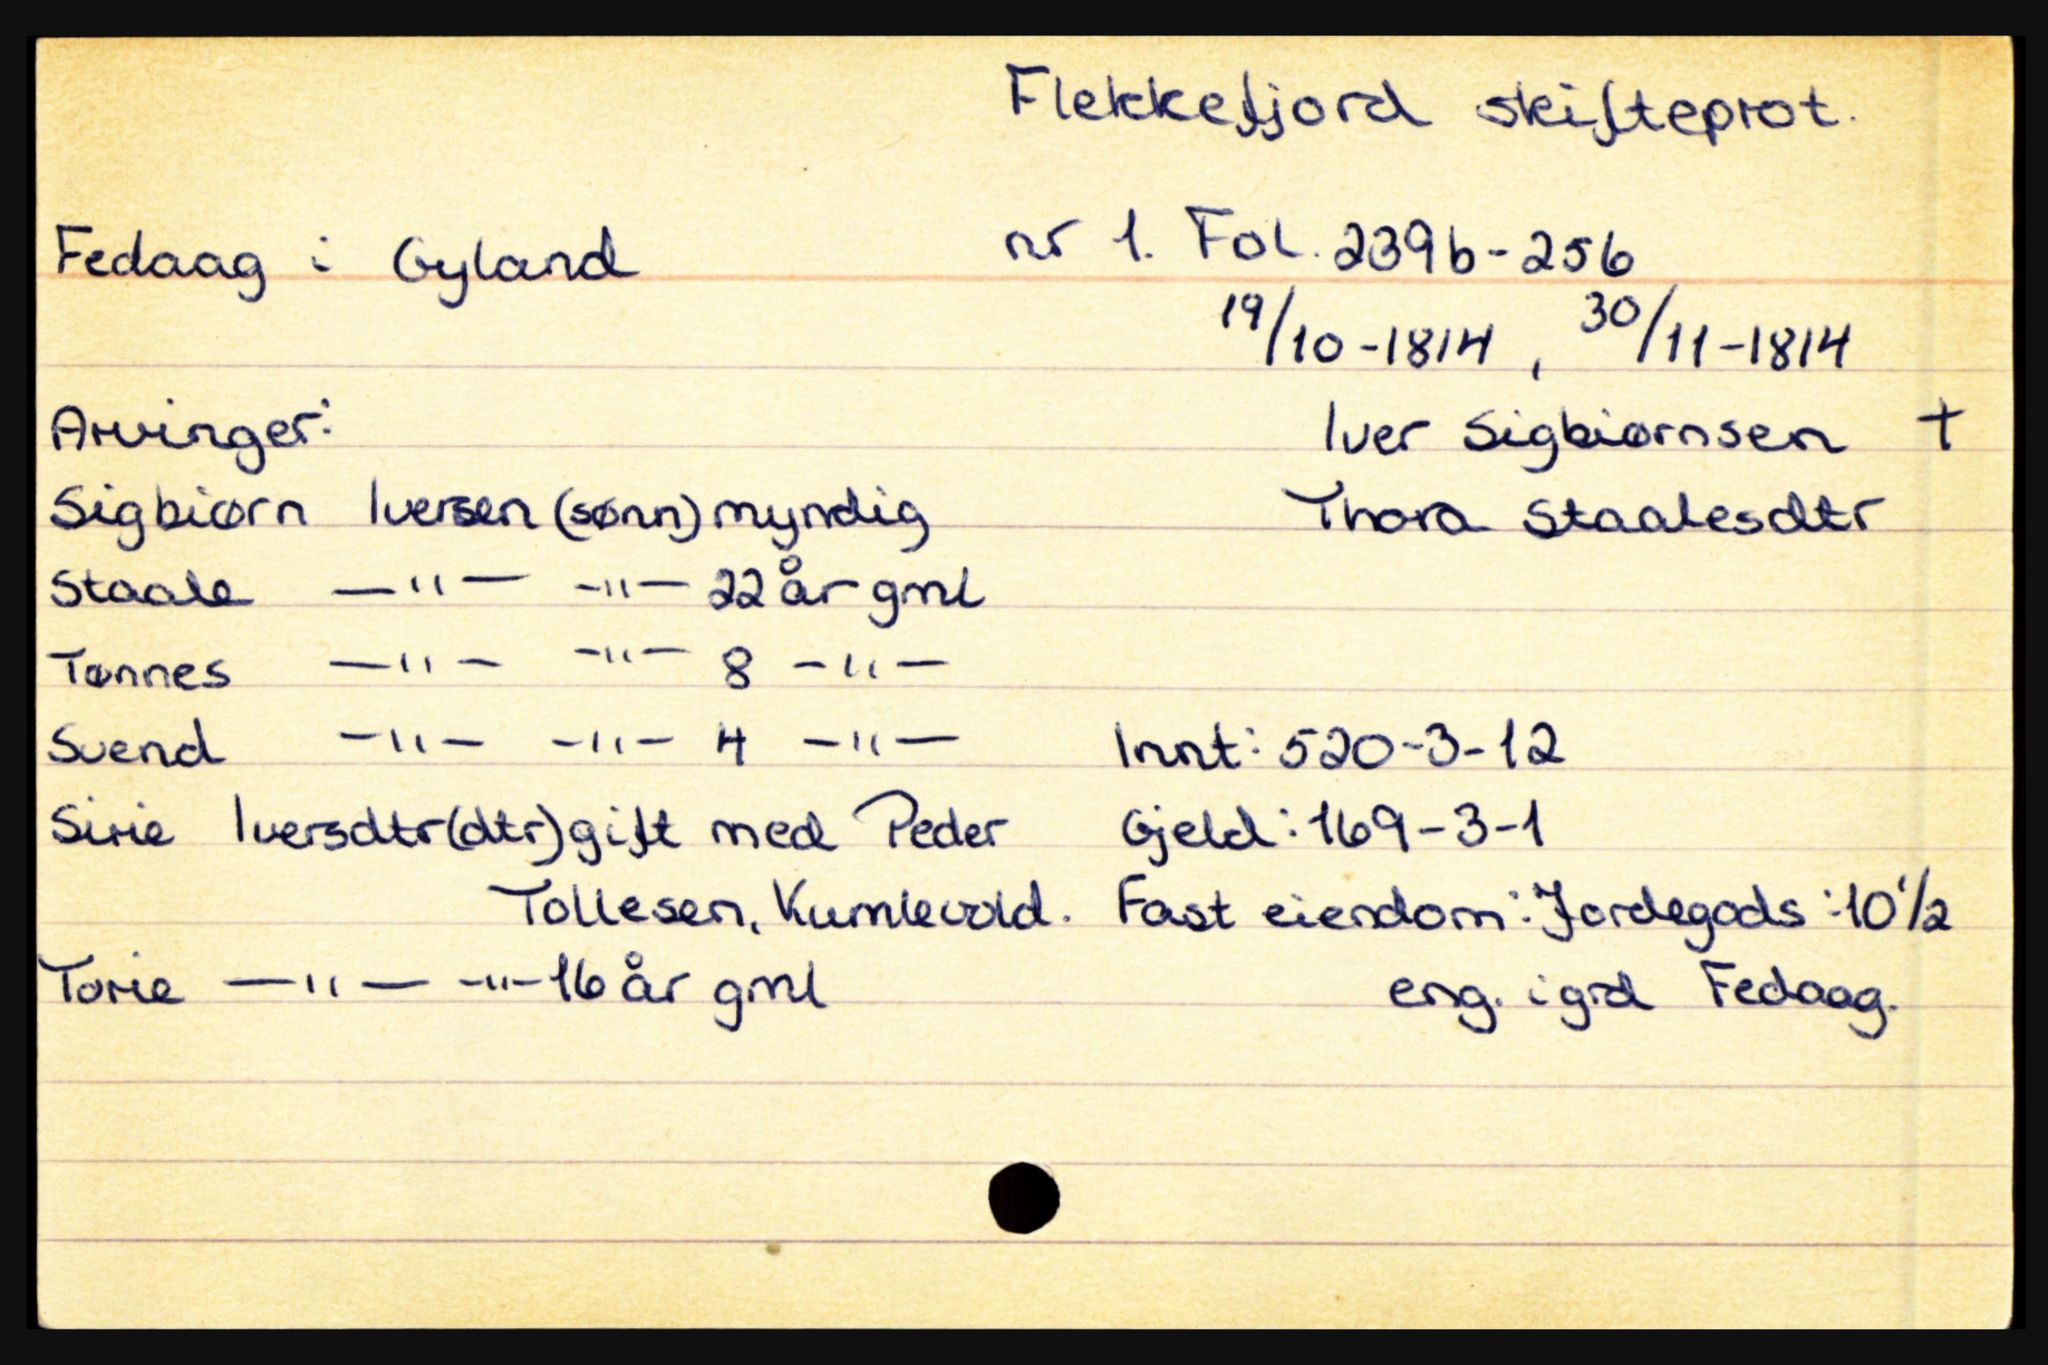 Flekkefjord skifteprot.
Fedaag i Gyland nr 1. Fol. 239b-256
19/10-1814, 30/11-1814
Arvinger: Iver Sigbiørnsen +
Sigbiørn Iversen (sønn) myndig Thora Staalesdtr
Staale —"— -"— 22 år gml
Tønnes —"— -"— 8 —"—
Svend —"— -"— 4 —"— Innt: 520-3-12
Sirie Iversdtr (dtr) gift med Peder Gjeld: 169-3-1
Tollesen, Kumlevold. Fast eiendom: Jordegods: 10 1/2
Torie —"— -"- 16 år gml eng. i grd Fedaag.